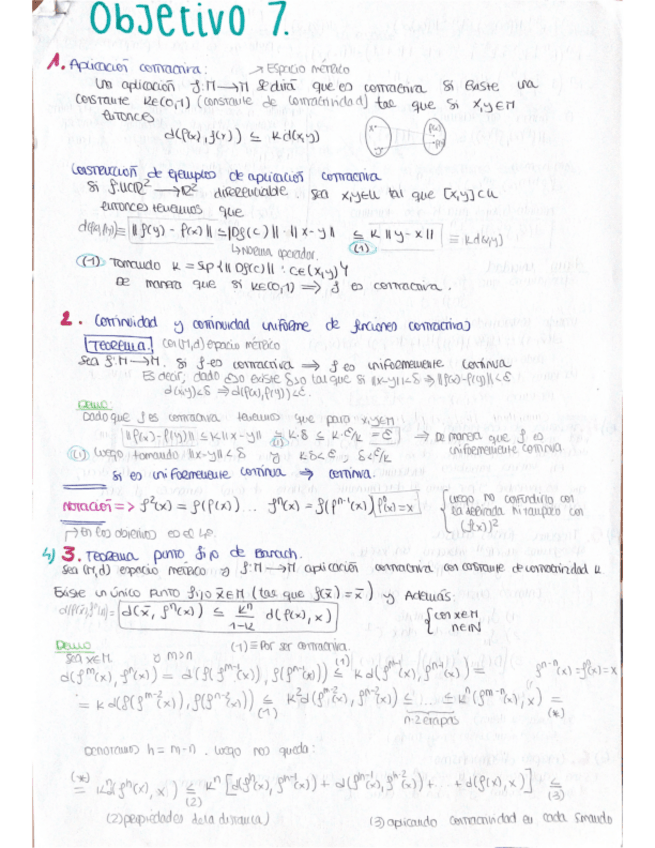 Objetivo 7.
1. Aplicación contractiva: → Espacio métrico
Una aplicación f: M → M se dirá que es contractiva si existe una
constante k∈(0,1) (constante de contractividad) tal que si x,y∈M
entonces
d(f(x), f(y)) ≤ k d(x,y)
Construcción de ejemplos de aplicación contractiva
Si f: U⊂ℝ² → ℝ² diferenciable. Sea x,y∈U tal que [x,y]⊂U
entonces tenemos que
d(f(x),f(y)) = ‖f(y) - f(x)‖ ≤ ‖Df(c)‖·‖x-y‖ ≤ k‖y-x‖ ≡ k d(x,y)
↳ Norma operador. (1)
(1) Tomando k = sup{‖Df(c)‖ : c∈(x,y)}
De manera que si k∈(0,1) ⟹ f es contractiva.
2. Continuidad y continuidad uniforme de funciones contractivas
Teorema. Con (M,d) espacio métrico
Sea f: M→M. Si f es contractiva ⟹ f es uniformemente continua
Es decir, dado ε>0 existe δ>0 tal que si ‖x-y‖<δ ⟹ ‖f(x)-f(y)‖<ε
d(x,y)<δ ⟹ d(f(x),f(y))<ε.
Demo:
Dado que f es contractiva tenemos que para x,y∈M
‖f(x)-f(y)‖ ≤ k‖x-y‖ ≤ k·δ ≤ k·ε/k = ε → De manera que f es
(1) uniformemente continua
(1) Luego tomando ‖x-y‖<δ y kδ<ε, δ<ε/k
Si es uniformemente continua ⟹ continua.
Notación => f²(x) = f(f(x)) ... fⁿ(x) = f(fⁿ⁻¹(x)) f⁰(x)=x
{ Luego no confundirlo con
la derivada ni tampoco con
(f(x))²
→ En los objetivos es el 4º.
4) 3. Teorema punto fijo de Banach.
Sea (M,d) espacio métrico y f: M→M aplicación contractiva con constante de contractividad k
Existe un único punto fijo x̄∈M (tal que f(x̄)=x̄) y además:
d(x̄, fⁿ(x)) ≤ kⁿ/(1-k) d(f(x),x) { con x∈M
n∈ℕ
Demo (1) ≡ Por ser contractiva.
Sea x∈M. y m>n
d(fᵐ(x), fⁿ(x)) = d(f(fᵐ⁻¹(x)), f(fⁿ⁻¹(x))) ≤(1) k d(fᵐ⁻¹(x), fⁿ⁻¹(x)) = fⁿ⁻ⁿ(x)=f⁰(x)=x
= k d(f(fᵐ⁻²(x)), f(fⁿ⁻²(x))) ≤(1) k² d(fᵐ⁻²(x), fⁿ⁻²(x)) ≤ ... ≤ kⁿ d(fᵐ⁻ⁿ(x), x) = (*)
n-2 etapas
Denotamos h = m-n. Luego nos queda:
(*) = kⁿ d(fʰ(x), x) ≤(2) kⁿ [d(fʰ(x), fʰ⁻¹(x)) + d(fʰ⁻¹(x), fʰ⁻²(x)) + ... + d(f(x), x)] ≤(3)
(2) propiedades de la distancia) (3) aplicando contractividad en cada sumando